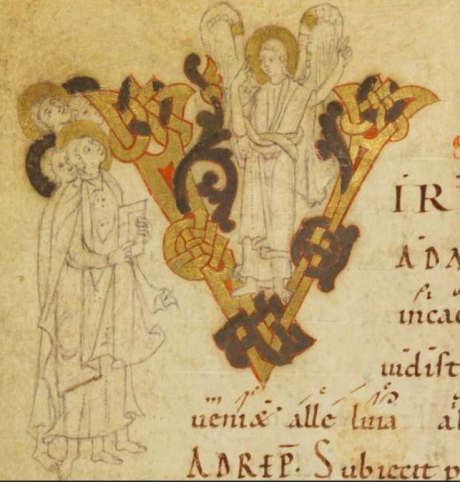 V IR
ADA
incae
uidist
ueni& alle luia al
AD REP̄. Subiecit p